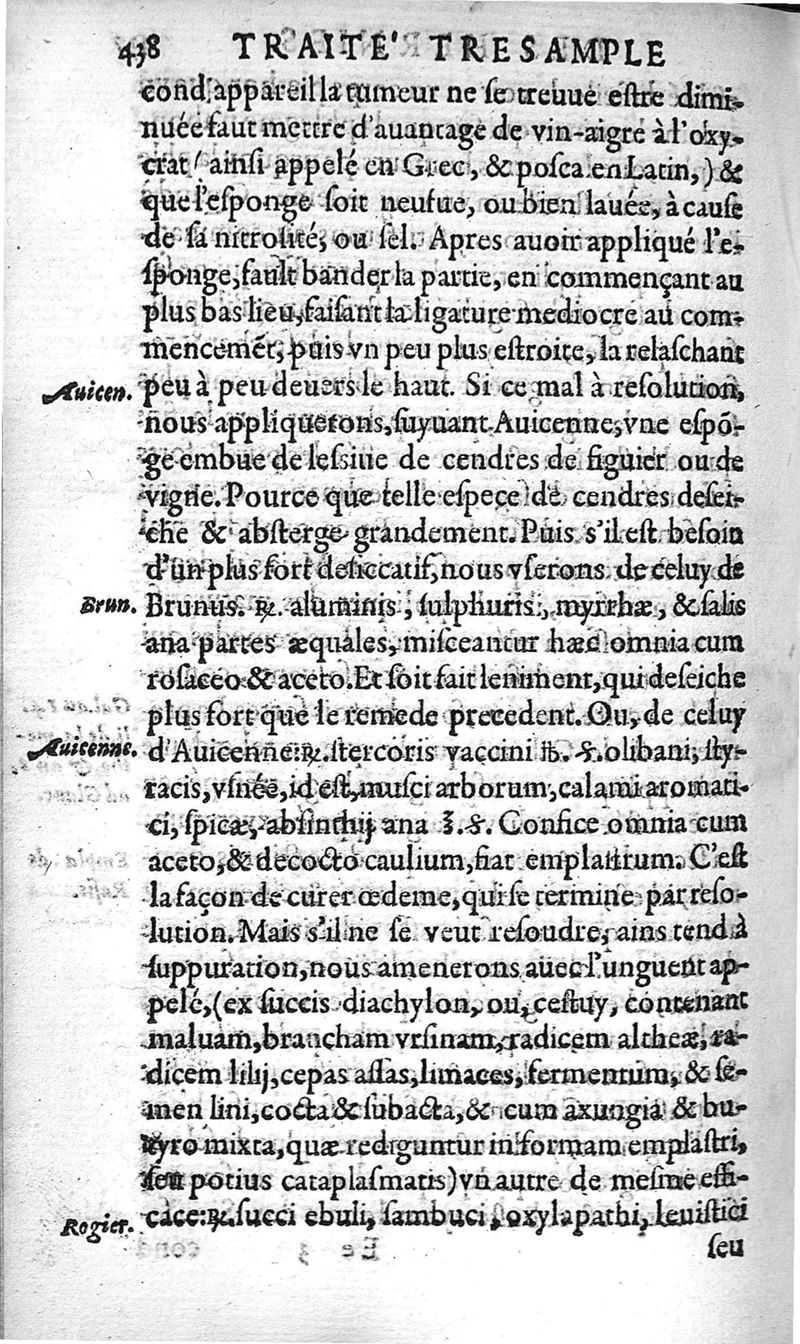 438 TRAITE' TRESAMPLE
cond appareil la tumeur ne se treuue estre dimi-
nuée faut mettre d'auantage de vin-aigre à l'oxy-
crat (ainsi appelé en Grec, & posca en Latin,) &
que l'esponge soit neufue, ou bien lauée, à cause
de sa nitrosité, ou sel. Apres auoir appliqué l'e-
sponge, fault bander la partie, en commençant au
plus bas lieu, faisant la ligature mediocre au com-
mencemẽt, puis vn peu plus estroite, la relaschant
Auicen. peu à peu deuers le haut. Si ce mal à resolution,
nous appliquerons, suyuant Auicenne, vne espõ-
ge embue de lessiue de cendres de figuier ou de
vigne. Pource que telle espece de cendres desei-
che & absterge grandement. Puis s'il est besoin
d'un plus fort desiccatif, nous vserons de celuy de
Brun. Brunus. ℞. aluminis, sulphuris, myrrhæ, & salis
ana partes æquales, misceantur hæc omnia cum
rosaceo & aceto. Et soit fait leniment, qui deseiche
plus fort que le remede precedent. Ou, de celuy
Auicenne. d'Auicenne: ℞. stercoris vaccini ℔. ß. olibani, sty-
racis, vsnée, id est, musci arborum, calami aromati-
ci, spicæ, absinthij ana ʒ. ß. Confice omnia cum
aceto, & decocto caulium, fiat emplastrum. C'est
la façon de curer œdeme, qui se termine par reso-
lution. Mais s'il ne se veut resoudre, ains tend à
suppuration, nous amenerons auec l'unguent ap-
pelé, (ex succis diachylon, ou, cestuy, contenant
maluam, brancham vrsinam, radicem altheæ, ra-
dicem lilij, cepas assas, limaces, fermentum, & se-
men lini, cocta & subacta, & cum axungia & bu-
tyro mixta, quæ rediguntur in formam emplastri,
seu potius cataplasmatis) vn autre de mesme effi-
Rogier. cace: ℞. succi ebuli, sambuci, oxylapathi, leuistici
seu